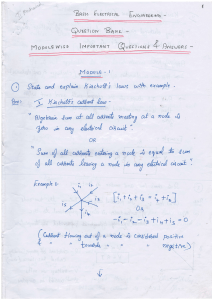 BASIC ELECTRICAL ENGINEERING -
QUESTION BANK -
MODULEWISE IMPORTANT QUESTIONS & ANSWERS -
MODULE - 1
① State and explain Kirchoff's laws with example -
I. Kirchoff's current law -
" Algebraic sum of all currents meeting at a node is
zero in any electrical circuit "
OR
" Sum of all currents entering a node is equal to sum
of all currents leaving a node in any electrical circuit "
Example :
OR
( Current flowing out of a node is considered positive
" " towards " " " negative )